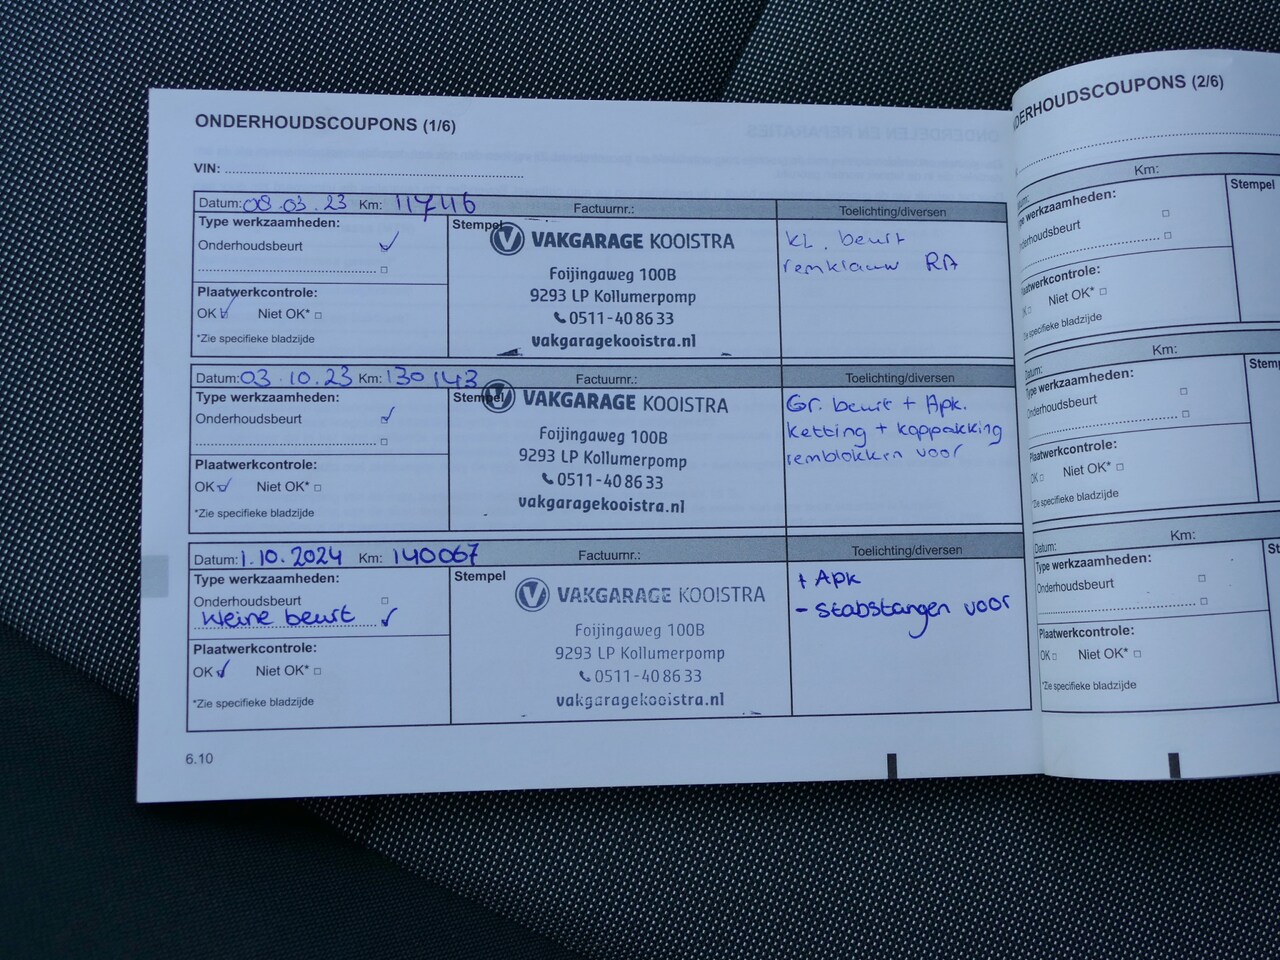 ONDERHOUDSCOUPONS (1/6)
VIN:
Datum: 08.03.23 Km: 117416 Factuurnr.: Toelichting/diversen
Type werkzaamheden:
Onderhoudsbeurt ✓
Plaatwerkcontrole:
OK ✓ Niet OK* □
*Zie specifieke bladzijde
Stempel
VAKGARAGE KOOISTRA
Foijingaweg 100B
9293 LP Kollumerpomp
0511-40 86 33
vakgaragekooistra.nl
KL. beurt
remklauw RA
Datum: 03.10.23 Km: 130143 Factuurnr.: Toelichting/diversen
Type werkzaamheden:
Onderhoudsbeurt ✓
Plaatwerkcontrole:
OK ✓ Niet OK* □
*Zie specifieke bladzijde
Stempel
VAKGARAGE KOOISTRA
Foijingaweg 100B
9293 LP Kollumerpomp
0511-40 86 33
vakgaragekooistra.nl
Gr. beurt + Apk.
ketting + koppakking
remblokken voor
Datum: 1.10.2024 Km: 140067 Factuurnr.: Toelichting/diversen
Type werkzaamheden:
Onderhoudsbeurt □
Kleine beurt ✓
Plaatwerkcontrole:
OK ✓ Niet OK* □
*Zie specifieke bladzijde
Stempel
VAKGARAGE KOOISTRA
Foijingaweg 100B
9293 LP Kollumerpomp
0511-40 86 33
vakgaragekooistra.nl
+ Apk
- stabstangen voor
6.10
DERHOUDSCOUPONS (2/6)
Km:
Stempel
pe werkzaamheden:
nderhoudsbeurt □
Plaatwerkcontrole:
OK □ Niet OK* □
*Zie specifieke bladzijde
Datum: Km:
Stemp
Type werkzaamheden:
Onderhoudsbeurt □
Plaatwerkcontrole:
OK □ Niet OK* □
*Zie specifieke bladzijde
Datum: Km:
St
Type werkzaamheden:
Onderhoudsbeurt □
Plaatwerkcontrole:
OK □ Niet OK* □
*Zie specifieke bladzijde